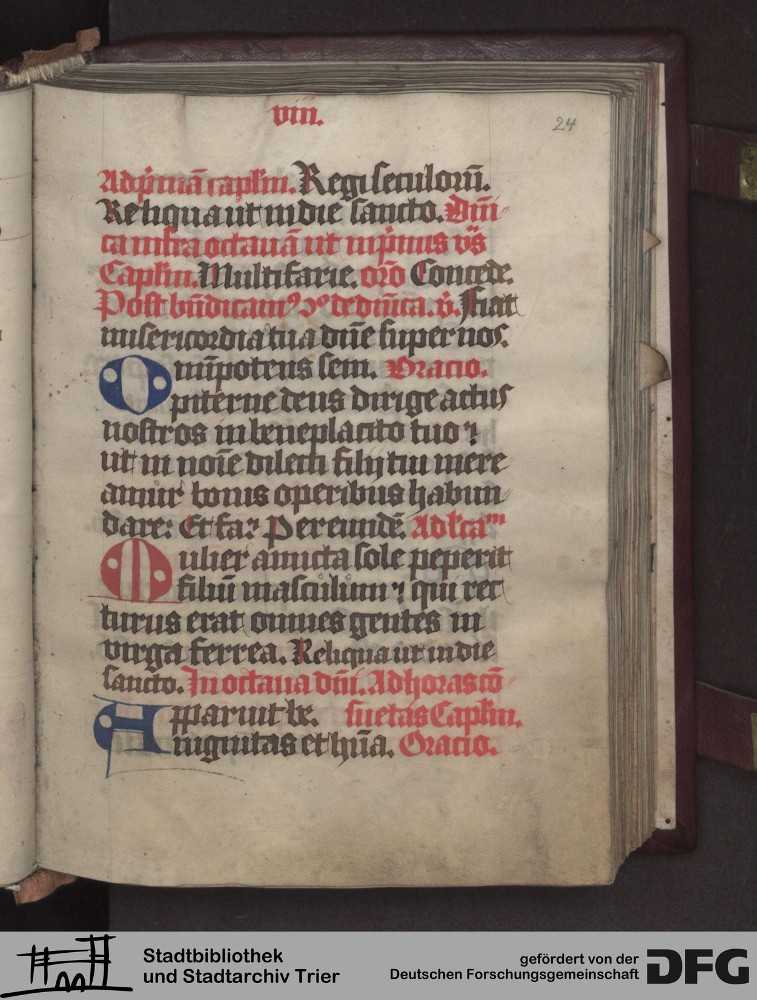 viii.
24
Ad p̄mā capłm. Regi seculoꝝ̄.
Reliqua ut in die sancto. Dn̄i
ca infra octauā ut in p̄mis v̄s
Capłm. Multifarie. oro̅ Concede.
Post bn̄dicamꝰ de dn̄ica. v̄. Fiat
misericordia tua dn̄e super nos.
Omīpotens sem. Oracio.
piterne deus dirige actus
nostros in beneplacito tuo ⁊
ut in noīe dilecti filij tui mere
amur bonis operibus habun
dare: Et fa? Per eundē. Ad
Mulier amicta sole peperit
filiū masculinum ⁊ qui rec
turus erat omnes gentes in
virga ferrea. Reliqua ut in die
sancto. In octaua dn̄i. Ad horas cō
Apparuit be. suetas Capłm.
nignitas et hūa. Oracio.
Stadtbibliothek
und Stadtarchiv Trier
gefördert von der
Deutschen Forschungsgemeinschaft
DFG